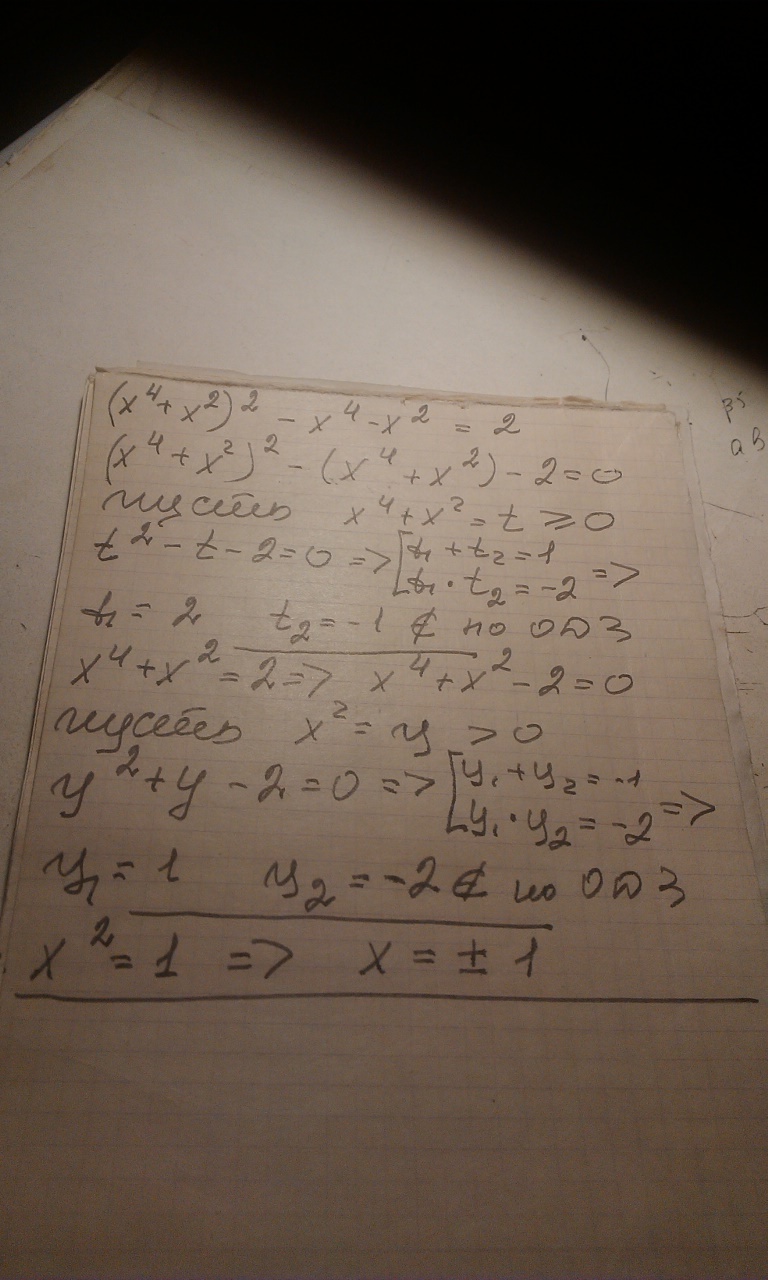 (x⁴+x²)² - x⁴-x² = 2
(x⁴+x²)² - (x⁴+x²) - 2=0
пусть x⁴+x²=t ⩾0
t²-t-2=0 => [t₁+t₂=1
t₁·t₂=-2 =>
t₁=2 t₂=-1 ∉ по ОДЗ
x⁴+x²=2=> x⁴+x²-2=0
пусть x²=y >0
y²+y-2=0 => [y₁+y₂=-1
y₁·y₂=-2 =>
y₁=1 y₂=-2 ∉ по ОДЗ
x²=1 => x=±1